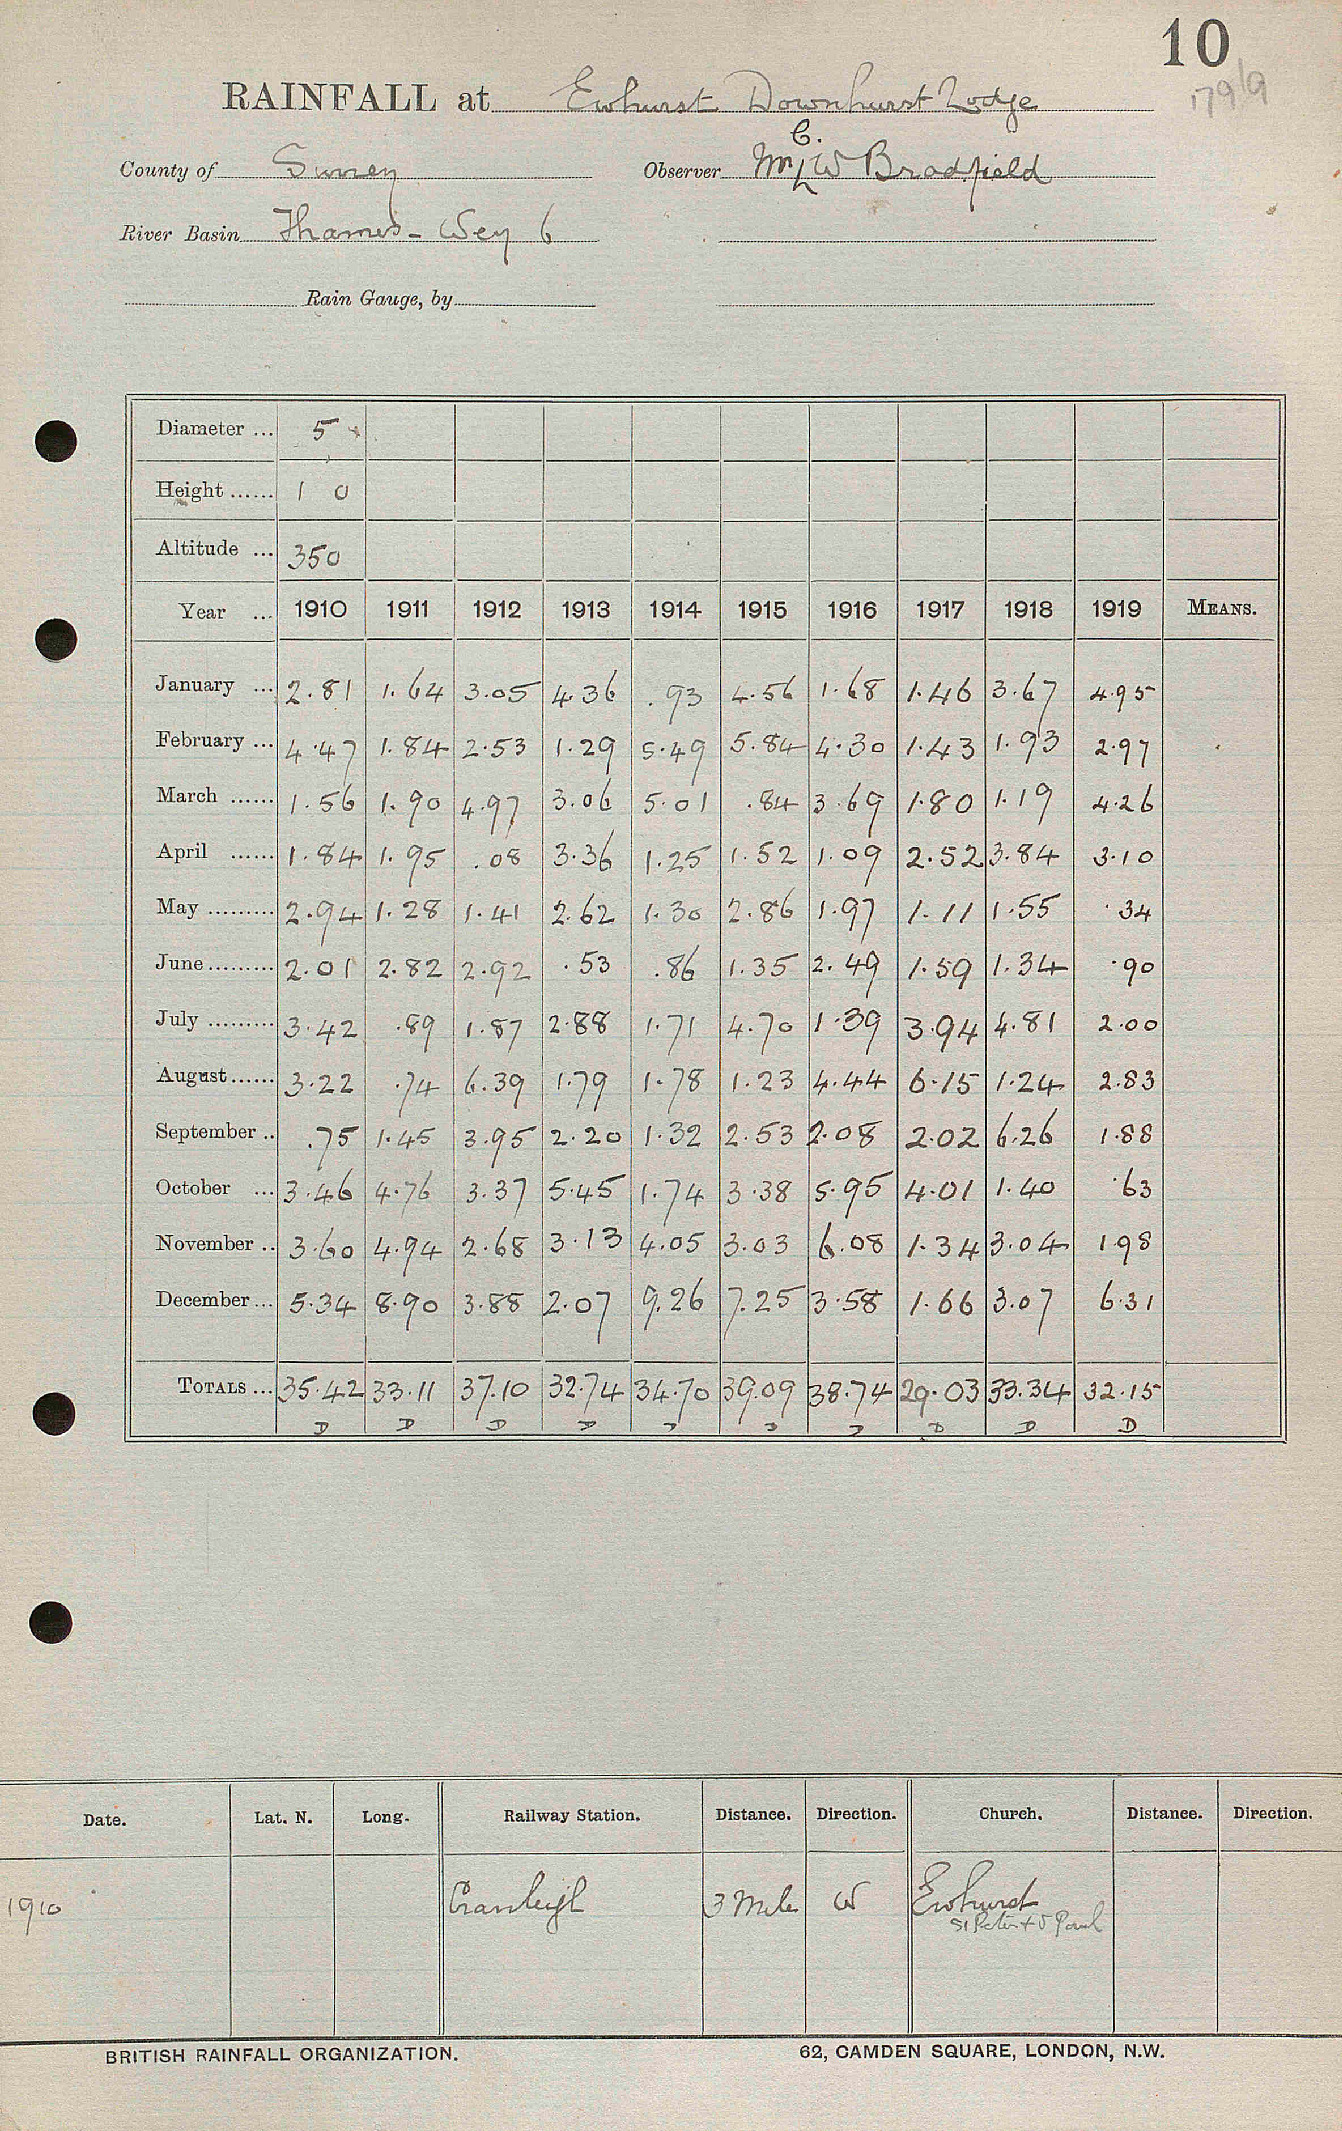 10
179/9
RAINFALL at Ewhurst Downhurst Lodge
C.
County of Surrey Observer Mr L W Bradfield
River Basin Thames - Wey 6
Rain Gauge, by
Diameter ... 5
Height ...... 1 0
Altitude ... 350
Year ... 1910 1911 1912 1913 1914 1915 1916 1917 1918 1919 MEANS.
January ... 2.81 1.64 3.05 4.36 .93 4.56 1.68 1.46 3.67 4.95
February ... 4.47 1.84 2.53 1.29 5.49 5.84 4.30 1.43 1.93 2.97
March ...... 1.56 1.90 4.97 3.06 5.01 .84 3.69 1.80 1.19 4.26
April ...... 1.84 1.95 .08 3.36 1.25 1.52 1.09 2.52 3.84 3.10
May ......... 2.94 1.28 1.41 2.62 1.30 2.86 1.97 1.11 1.55 .34
June ......... 2.01 2.82 2.92 .53 .86 1.35 2.49 1.59 1.34 .90
July ......... 3.42 .89 1.87 2.88 1.71 4.70 1.39 3.94 4.81 2.00
August ...... 3.22 .74 6.39 1.79 1.78 1.23 4.44 6.15 1.24 2.83
September .. .75 1.45 3.95 2.20 1.32 2.53 2.08 2.02 6.26 1.88
October ... 3.46 4.76 3.37 5.45 1.74 3.38 5.95 4.01 1.40 .63
November .. 3.60 4.94 2.68 3.13 4.05 3.03 6.08 1.34 3.04 1.98
December ... 5.34 8.90 3.88 2.07 9.26 7.25 3.58 1.66 3.07 6.31
TOTALS ... 35.42 33.11 37.10 32.74 34.70 39.09 38.74 29.03 33.34 32.15
D D D D D D D D D D
Date. Lat. N. Long. Railway Station. Distance. Direction. Church. Distance. Direction.
1910 Cranleigh 3 Mile W Ewhurst
St Peter & S Paul
BRITISH RAINFALL ORGANIZATION. 62, CAMDEN SQUARE, LONDON, N.W.